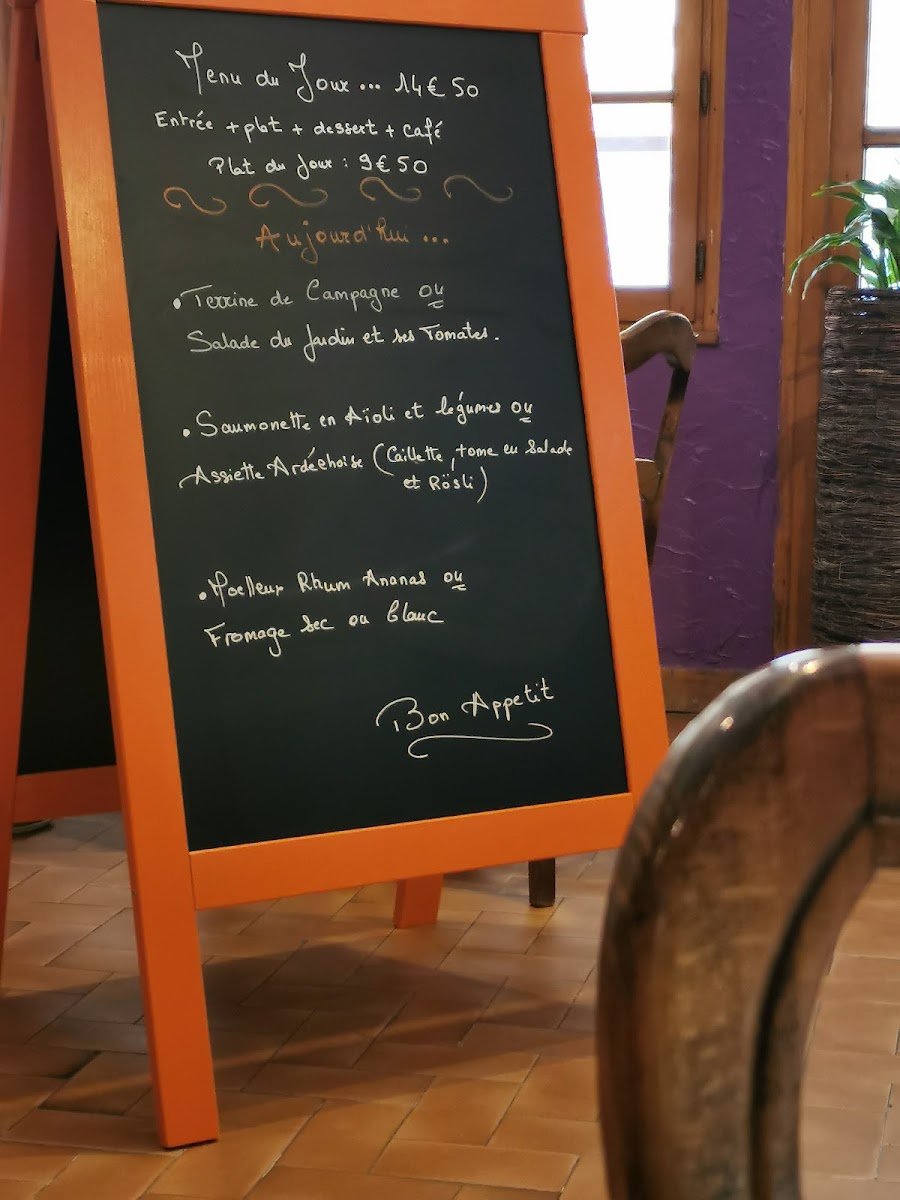 Menu du Jour... 14€50
Entrée + plat + dessert + café
Plat du Jour : 9€50
Aujourd'hui ...
• Terrine de Campagne ou
Salade du Jardin et ses Tomates.
• Saumonette en Aïoli et légumes ou
Assiette Ardéchoise (Caillette, tome en Salade
et Rösli)
• Moelleux Rhum Ananas ou
Fromage Sec ou blanc
Bon Appetit